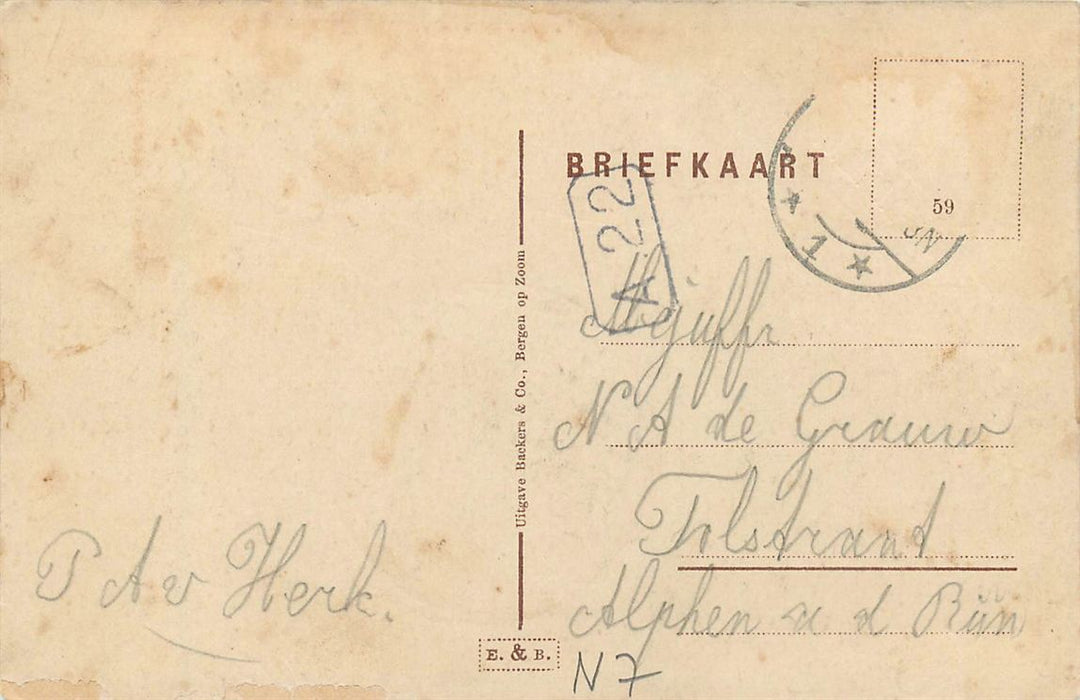 BRIEFKAART
59
A 22
1
Mejuffr.
N A de Grauw
Tolstraat
Alphen a d Rijn
N 7
P A v Herk.
Uitgave Backers & Co., Bergen op Zoom
E. & B.